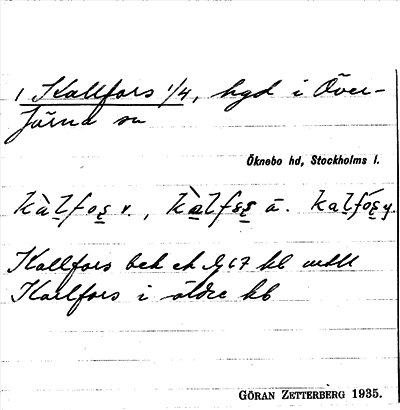 1 Kallfors 1/4, hgd i Över-
Järna sn
Öknebo hd, Stockholms l.
kàlfos v., kàlfss ä. kalfósy.
Kallfors bek ek G 67 kb
Karlfors i äldre kb
GÖRAN ZETTERBERG 1935.